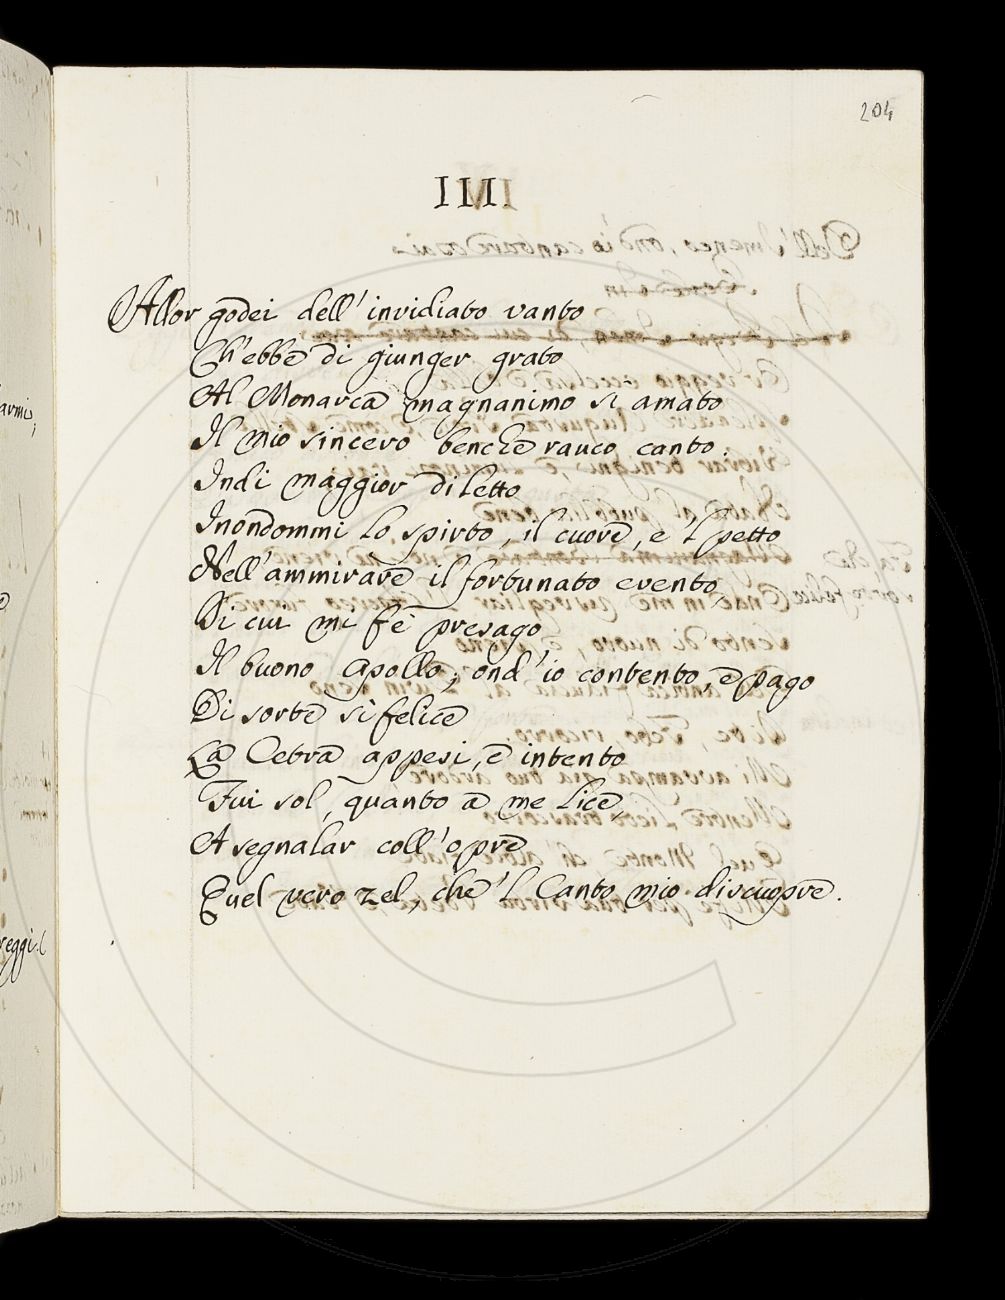 204
III
Allor godei dell' invidiato vanto
Ch'ebbe di giunger grato
Al Monarca magnanimo sì amato
Il mio sincero benche rauco canto.
Indi maggior diletto
Inondommi lo spirto, il cuore, e 'l petto
Nell' ammirare il fortunato evento,
Di cui mi fè presago
Il buono Apollo; ond' io contento, e pago
Di sorte si felice
La Cetra appesi, e intento
Fui sol, quanto a me lice,
A segnalar coll' opre
Quel vero zel, che 'l Canto mio discuopre.
armi,
reggi.